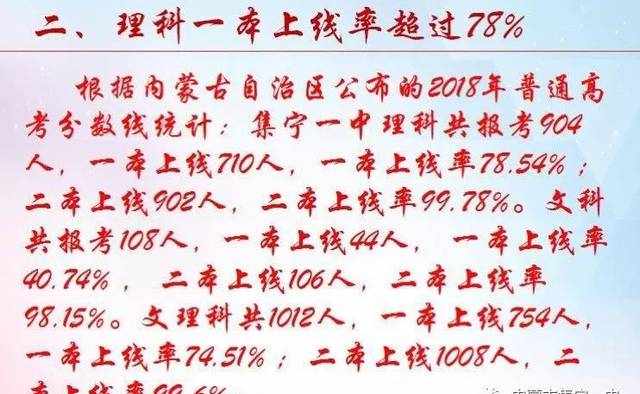 二、理科一本上线率超过78%
根据内蒙古自治区公布的2018年普通高
考分数线统计：集宁一中理科共报考904
人，一本上线710人，一本上线率78.54%；
二本上线902人，二本上线率99.78%。文科
共报考108人，一本上线44人，一本上线率
40.74%，二本上线106人，二本上线率
98.15%。文理科共1012人，一本上线754人，
一本上线率74.51%；二本上线1008人，二
本上线率99.6%